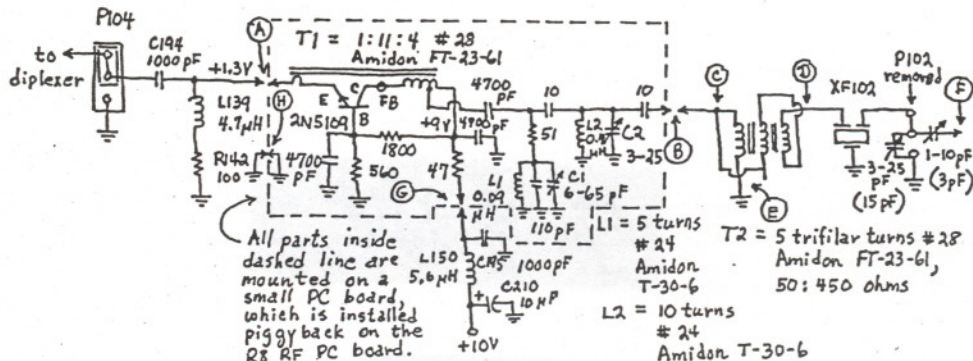 P104
to
diplexer
C194
1000 pF
+1.3V
L139
4.7μH
R142
100
A
H
T1 = 1:11:4 #28
Amidon FT-23-61
E
C
B
FB
2N5109
4700
pF
560
1800
+9V
47
4700
pF
4700
pF
G
10
51
L1
0.09
μH
C1
6-65 pF
110pF
10
L2
μH
C2
3-25
B
C
D
E
XF102
P102
removed
F
3-25
pF
(15pF)
1-10pF
(3pF)
All parts inside
dashed line are
mounted on a
small PC board,
which is installed
piggyback on the
R8 RF PC board.
L150
5.6μH
1000pF
C210
10 μF
+10V
L1 = 5 turns
#24
Amidon
T-30-6
L2 = 10 turns
#24
Amidon T-30-6
T2 = 5 trifilar turns #28
Amidon FT-23-61,
50:450 ohms